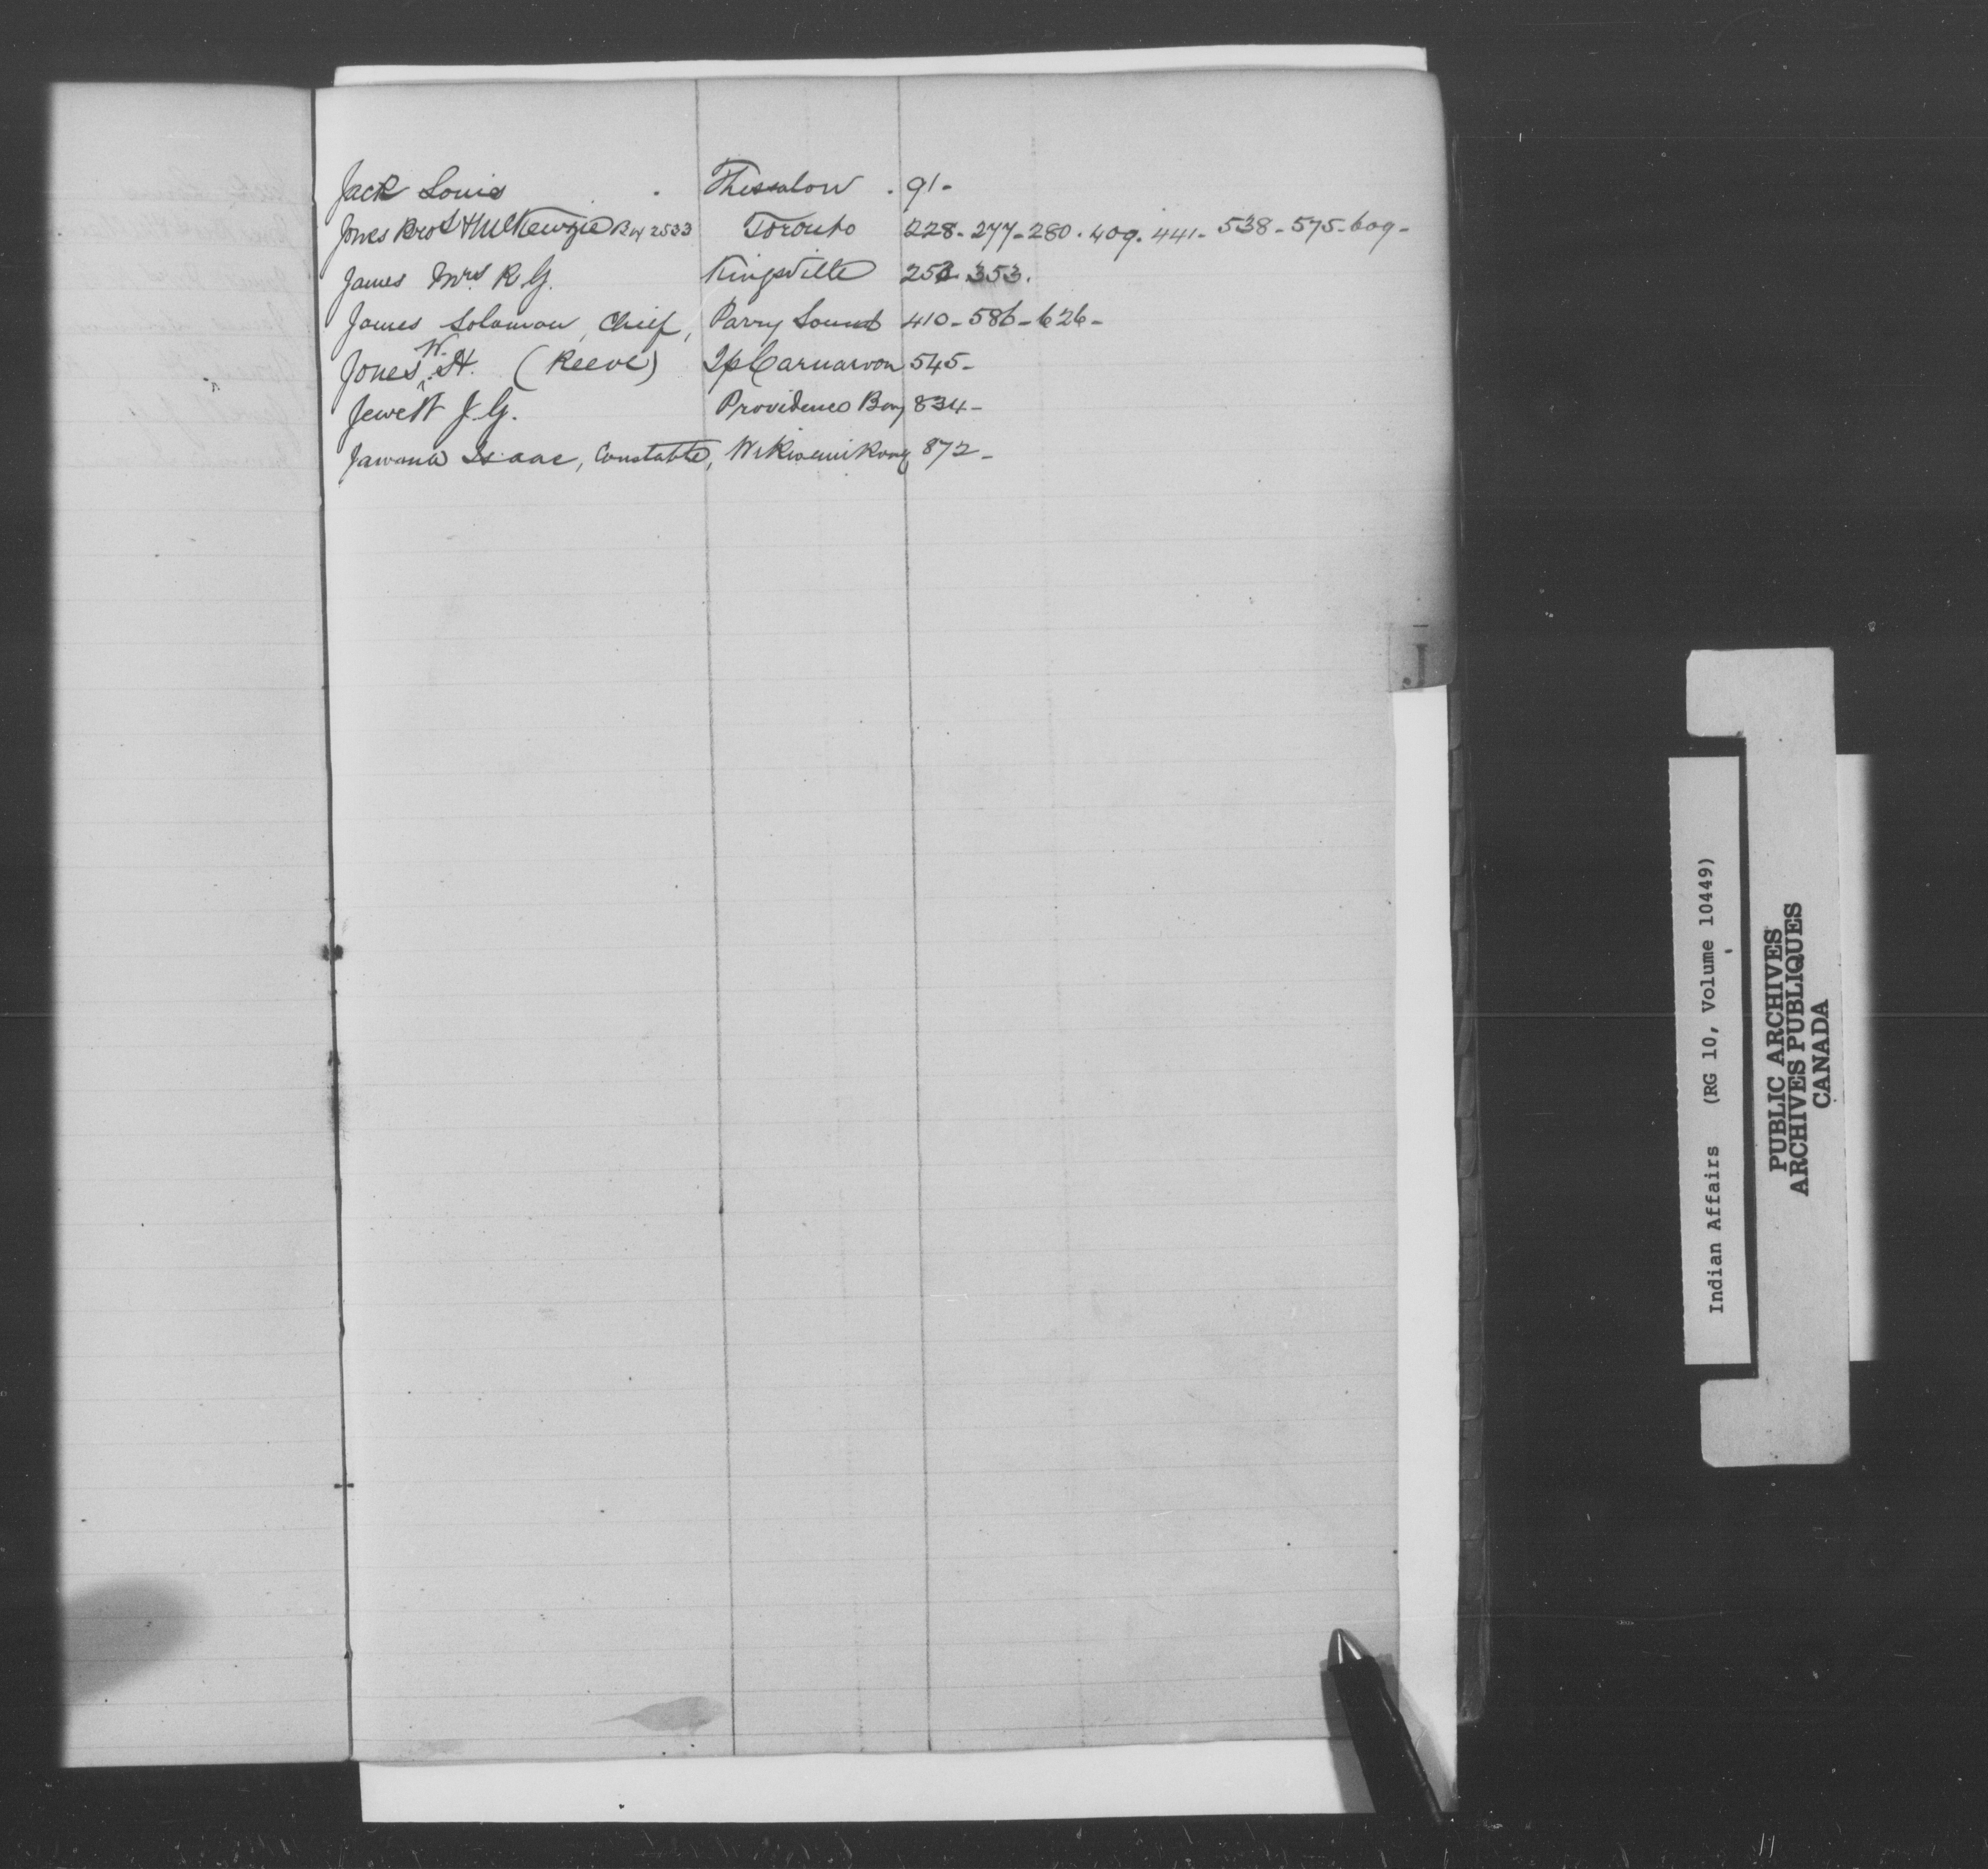 Jack Louis . Thessalon . 91 -
Jones Bros & McKenzie Box 2533 Toronto 228 - 277 - 280 . 409 . 441 - 538 - 575 - 609 -
James Mrs R. G. Kingsville 253 . 353 .
James Solomon, Chief, Parry Sound 410 - 586 - 626 -
Jones, W. H. (Reeve) Tp Carnarvon 545 -
Jewett J. G. Providence Bay 834 -
Isaac, Constable, Wikwemikong 872 -
J
Indian Affairs (RG 10, Volume 10449)
PUBLIC ARCHIVES
ARCHIVES PUBLIQUES
CANADA